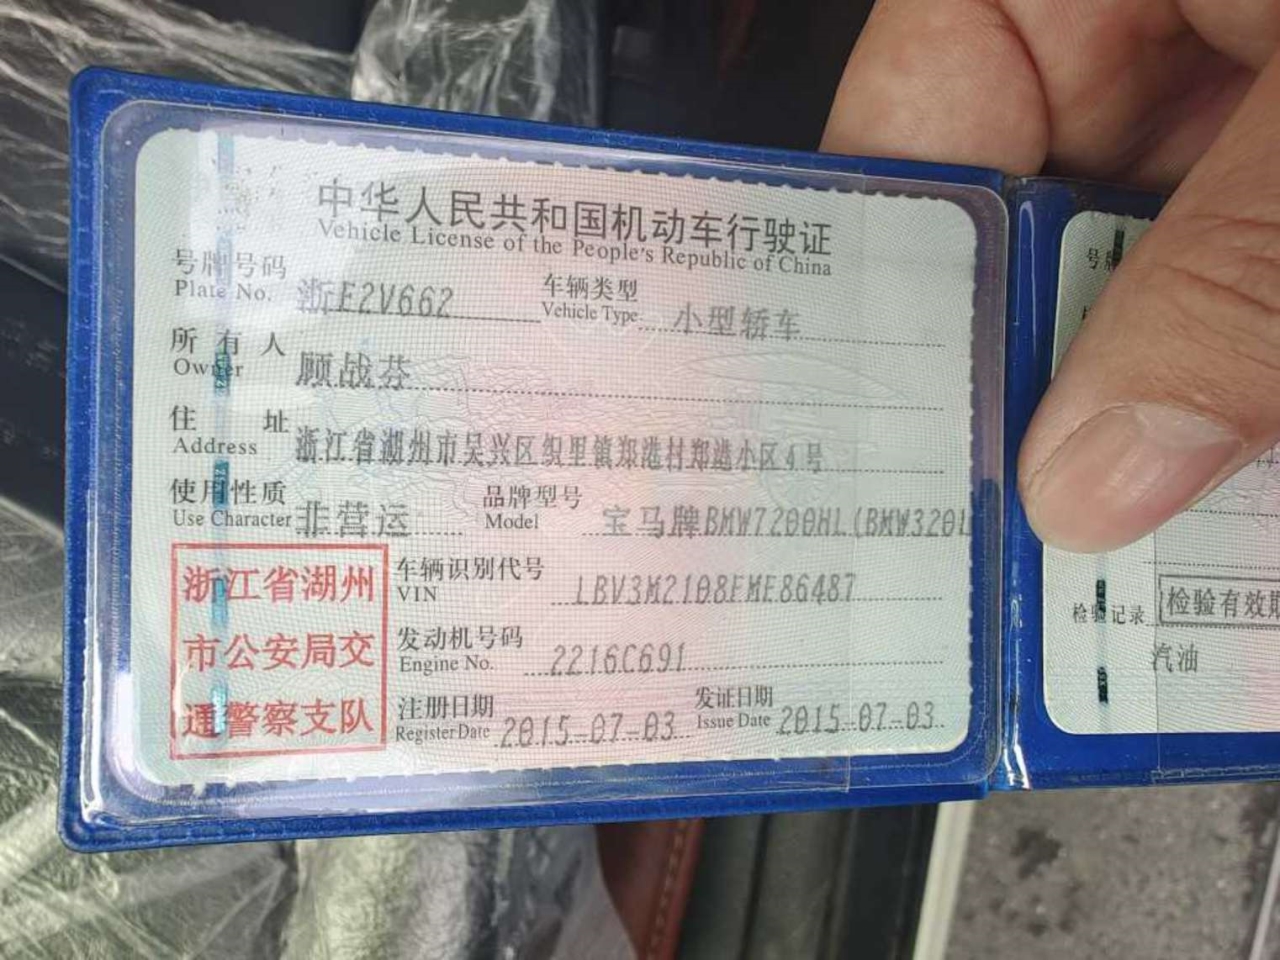 中华人民共和国机动车行驶证
Vehicle License of the People's Republic of China
号牌号码 浙E2V662 车辆类型 小型轿车
Plate No. Vehicle Type
所有人 顾战芬
Owner
住址 浙江省湖州市吴兴区织里镇郑港村郑港小区4号
Address
使用性质 非营运 品牌型号 宝马牌BMW7200HL(BMW320L
Use Character Model
浙江省湖州
市公安局交
通警察支队
车辆识别代号 LBV3M2108FME86487
VIN
发动机号码 2216C691
Engine No.
注册日期 2015-07-03 发证日期 2015-07-03
Register Date Issue Date
号牌
检验记录 检验有效期
汽油